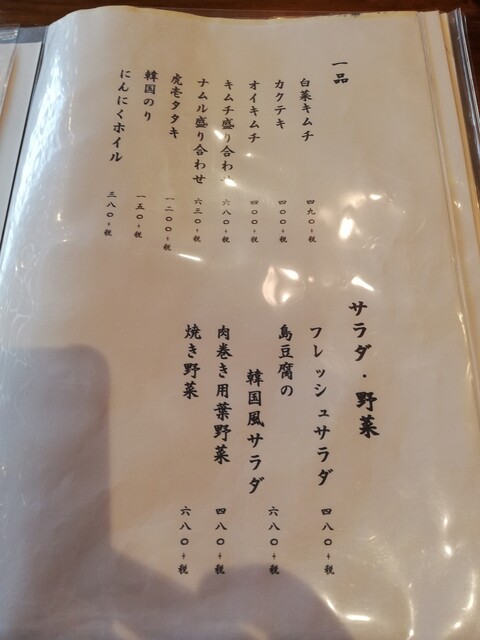 一品
白菜キムチ
四九〇+税
カクテキ
四〇〇+税
オイキムチ
四〇〇+税
キムチ盛り合わせ
六八〇+税
ナムル盛り合わせ
六三〇+税
虎壱タタキ
一二〇〇+税
韓国のり
一五〇+税
にんにくホイル
三八〇+税
サラダ・野菜
フレッシュサラダ
四八〇+税
島豆腐の
韓国風サラダ
六八〇+税
肉巻き用葉野菜
四八〇+税
焼き野菜
六八〇+税